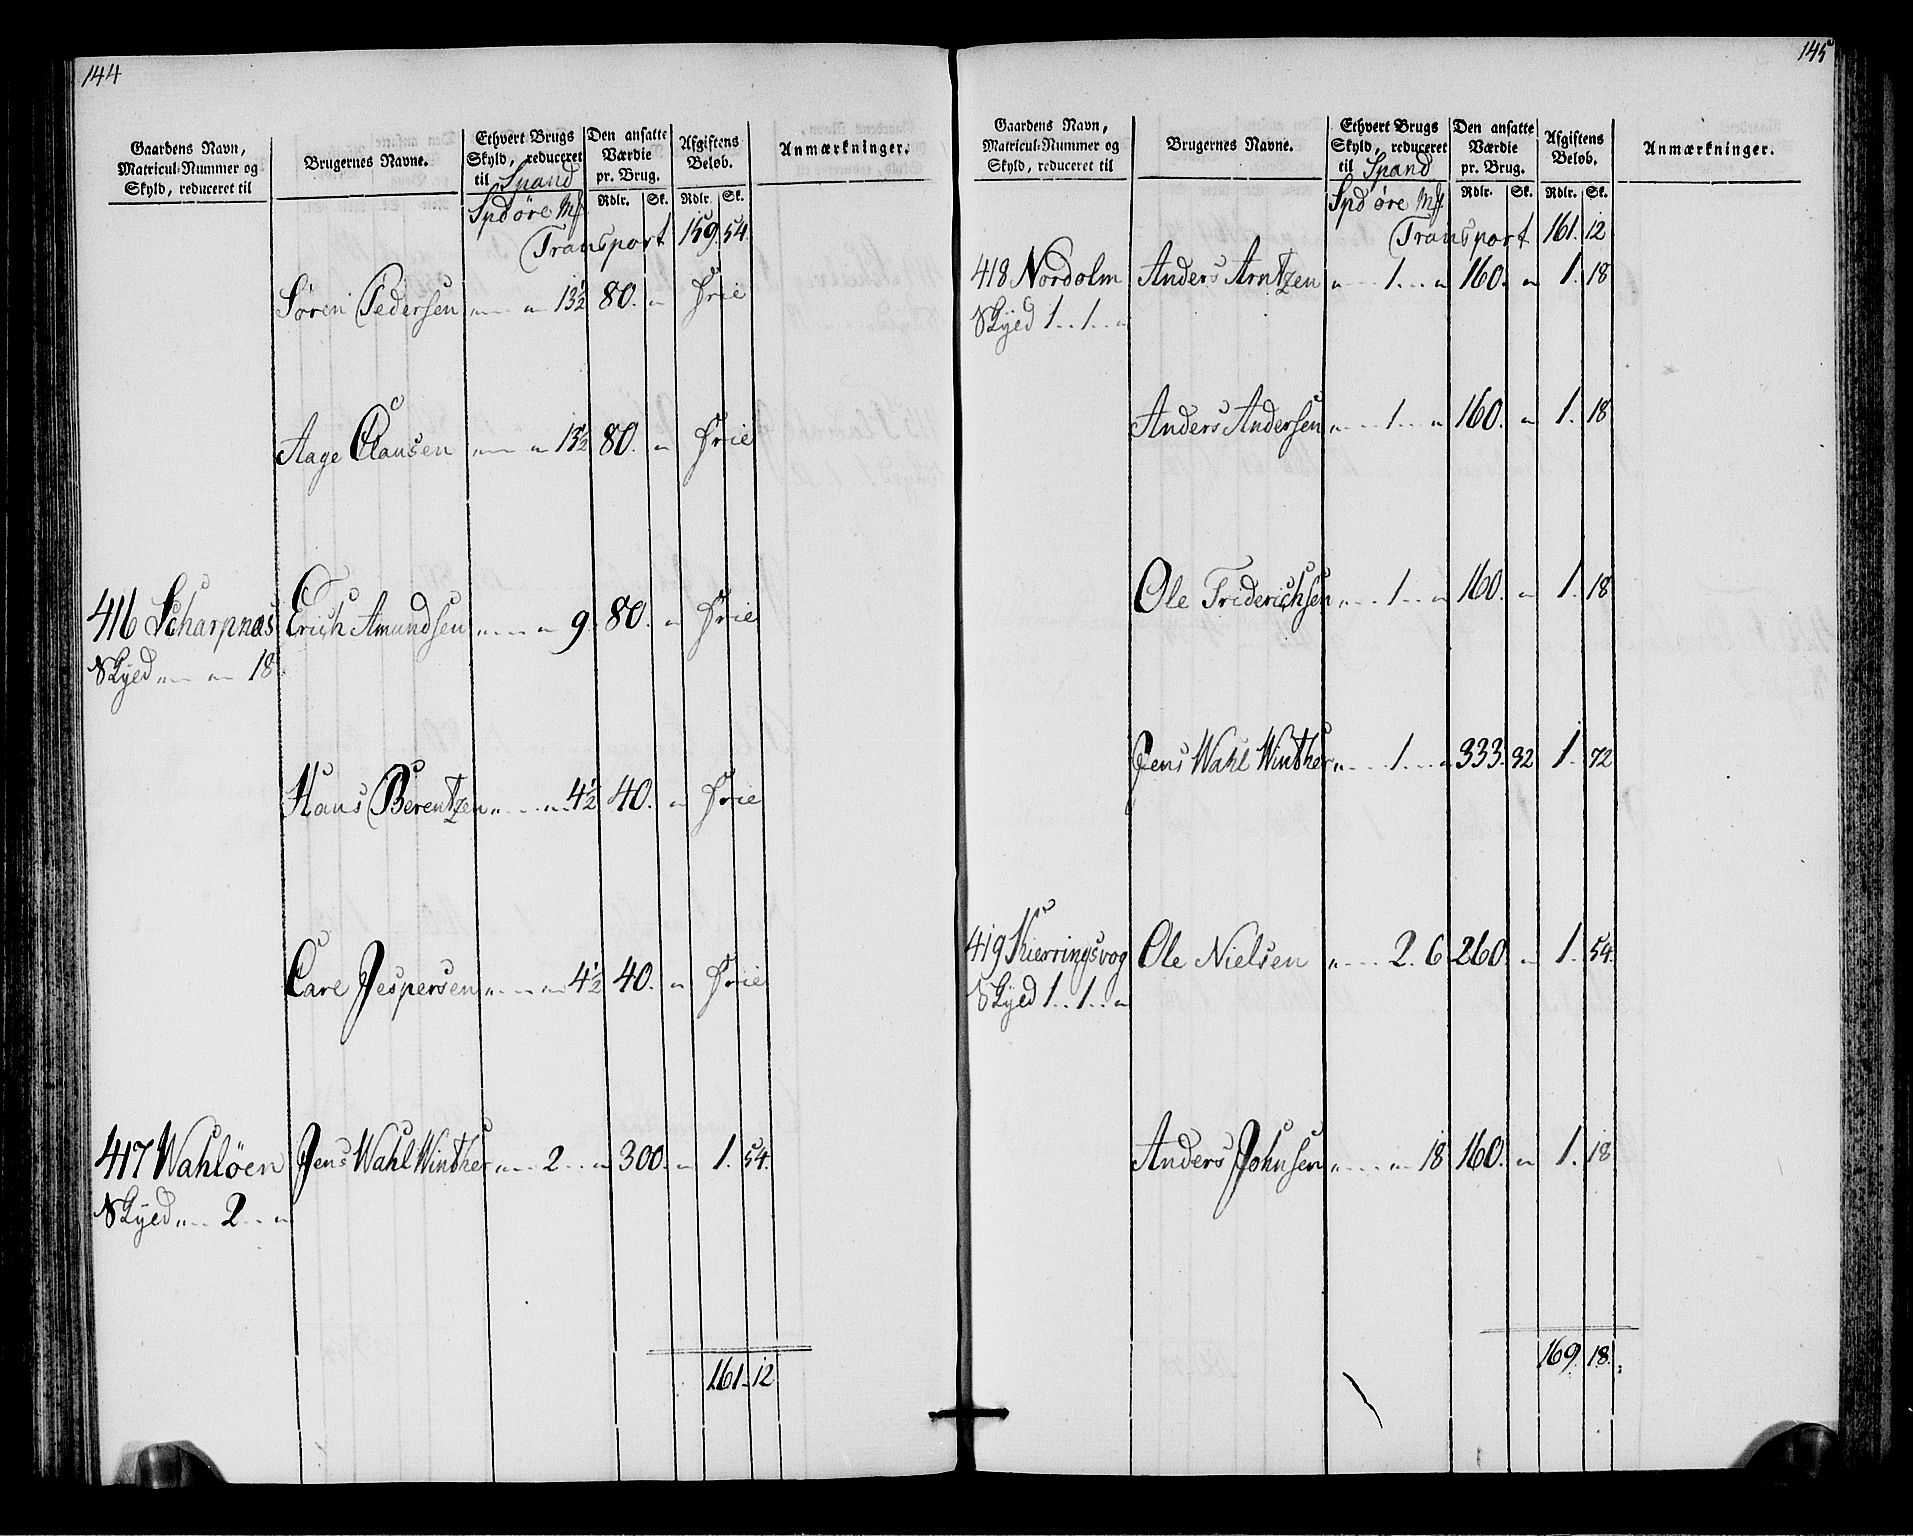 144
Gaardens Navn, Matricul-Nummer og Skyld, reduceret til
Brugernes Navne.
Ethvert Brugs Skyld, reduceret til Spand
Den ansatte Værdie pr. Brug.
Afgiftens Beløb.
Anmærkninger.
Spd øre Mf Rdlr. Sk. Rdlr. Sk.
Transport 159. 54.
Søren Pedersen " " 13½ 80. " Frie
Aage Clausen " " 13½ 80. " Frie
416 Scharpnæs Erich Amundsen " " 9. 80. " Frie
Skyld " " 18
Hans Berentzen " " 4½ 40. " Frie
Carl Jespersen " " 4½ 40. " Frie
417 Wahløen Jens Wahl Winther " 2 " 300. " 1. 54.
Skyld " 2 "
161. 12
145
Gaardens Navn, Matricul-Nummer og Skyld, reduceret til
Brugernes Navne.
Ethvert Brugs Skyld, reduceret til Spand
Den ansatte Værdie pr. Brug.
Afgiftens Beløb.
Anmærkninger.
Spd øre Mf Rdlr. Sk. Rdlr. Sk.
Transport 161. 12
418 Nordolm Anders Arntzen " 1. " 160. " 1. 18
Skyld 1 1 "
Anders Andersen " 1 " 160. " 1. 18
Ole Friderichsen " 1 " 160. " 1. 18
Jens Wahl Winther " 1 " 333. 32 1. 72
419 Kierringsvog Ole Nielsen " 2. 6 260. " 1. 54.
Skyld 1 1 "
Anders Johnsen " " 18 160. " 1. 18
169. 18.